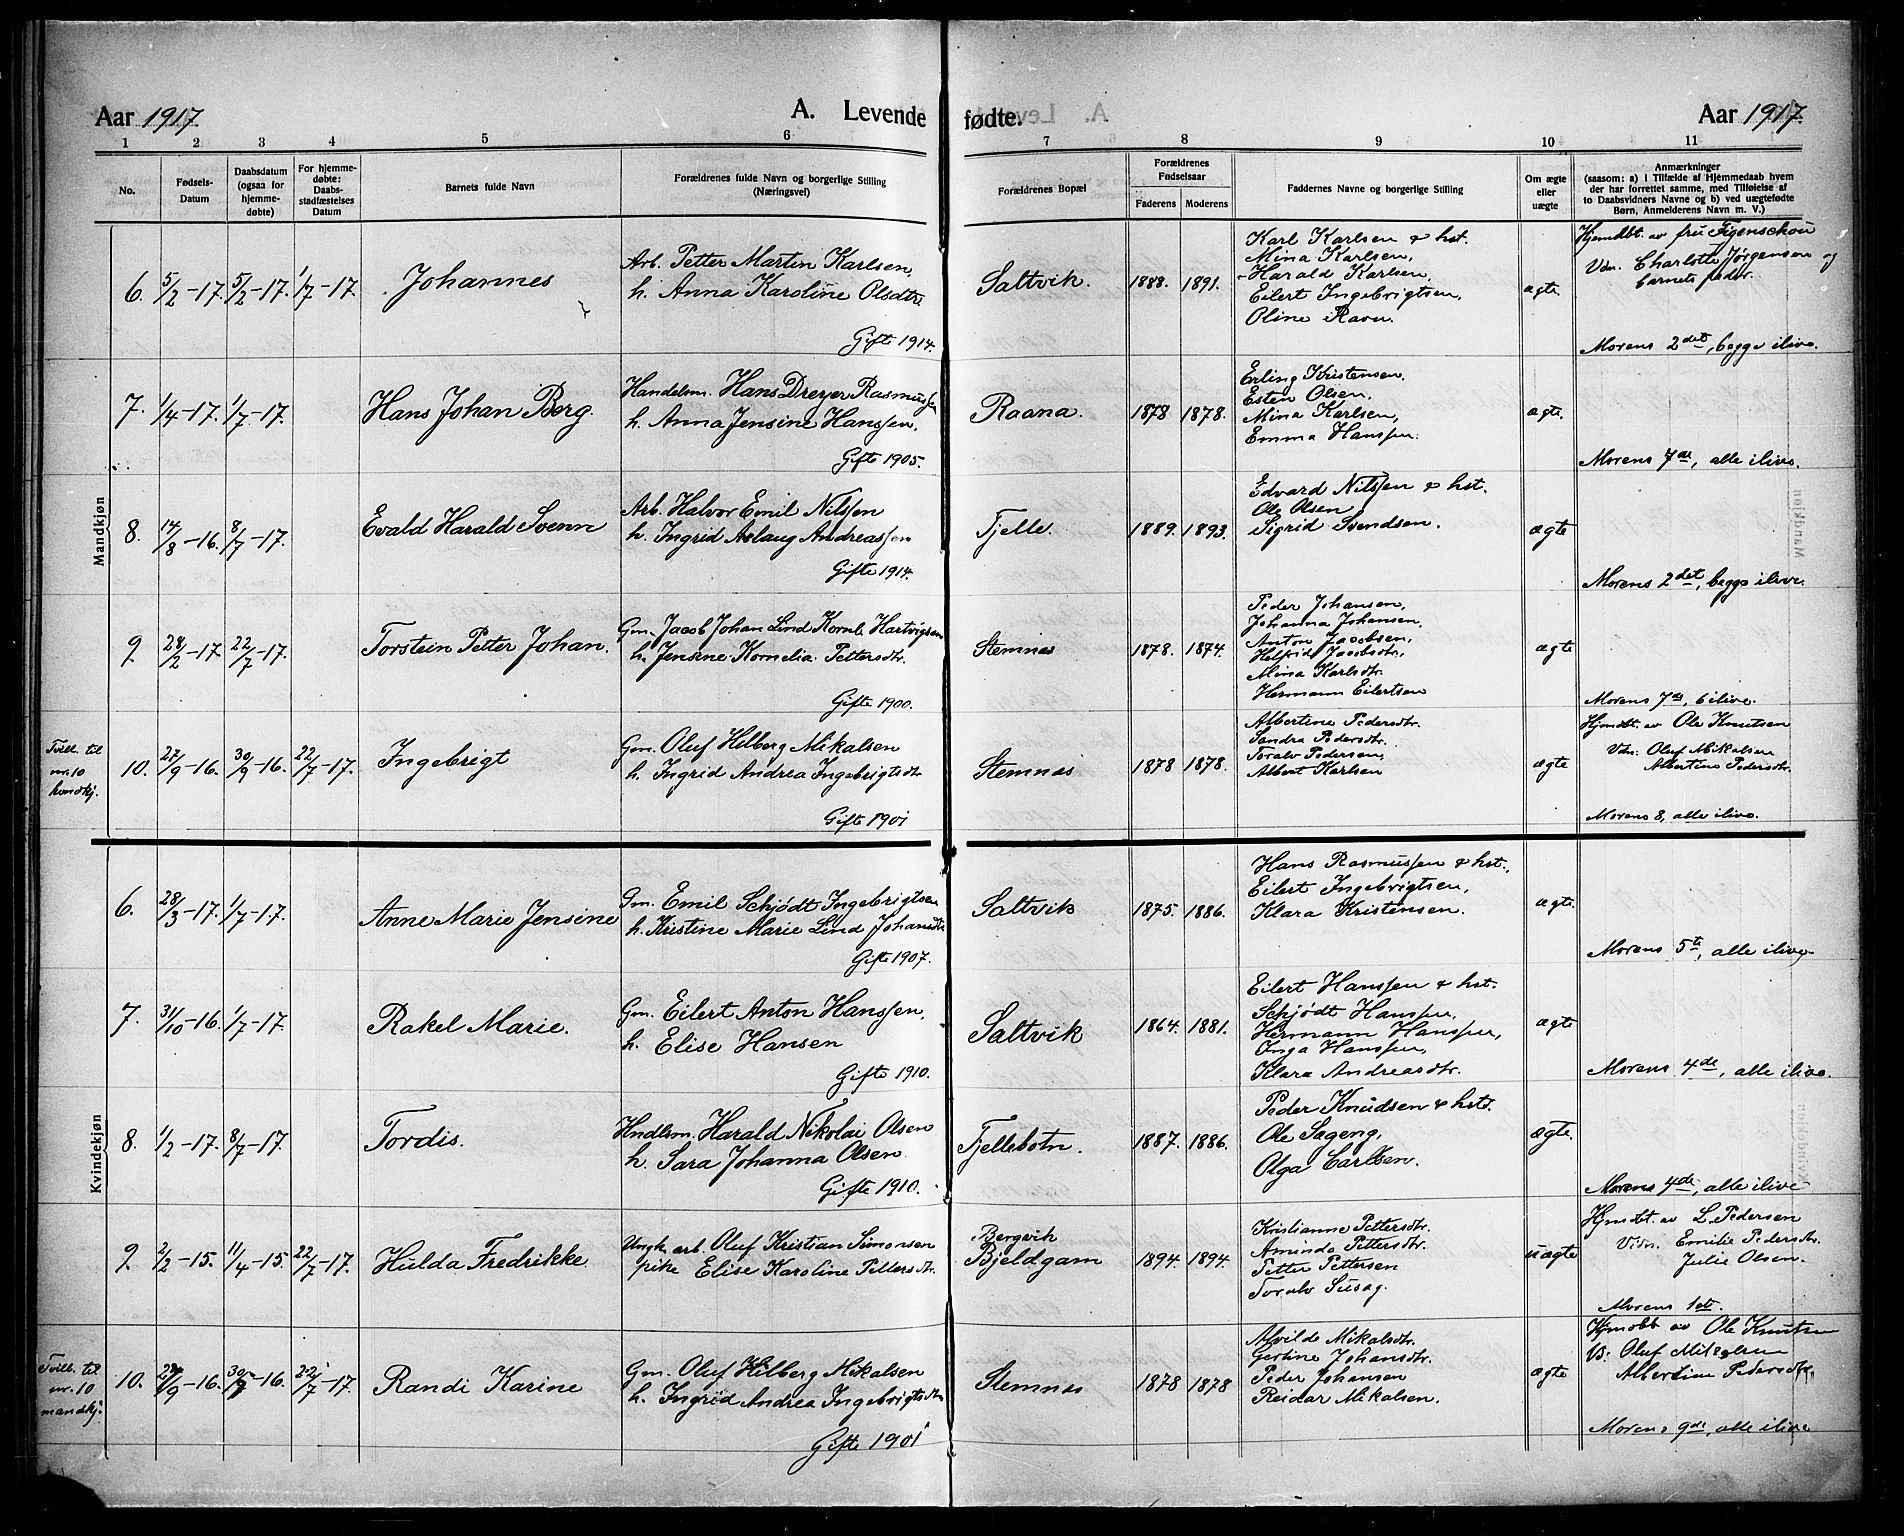 Aar 1917 A. Levende fødte. Aar 1917.
1 2 3 4 5 6 7 8 9 10 11
No. Fødsels-Datum Daabsdatum (ogsaa for hjemme-døbte) For hjemme-døbte: Daabs-stadfæstelses Datum Barnets fulde Navn Forældrenes fulde Navn og borgerlige Stilling (Næringsvei) Forældrenes Bopæl Forældrenes Fødselsaar Faderens Moderens Faddernes Navne og borgerlige Stilling Om ægte eller uægte Anmærkninger (saasom: a) i Tilfælde af Hjemmedaab hvem der har forrettet samme, med Tilføielse af to Daabsvidners Navne og b) ved uægtefødte Børn, Anmelderens Navn m. V.)
Mandkjøn
6. 5/2-17. 5/2-17. 1/7-17. Johannes
Arb. Petter Martin Karlsen,
h. Anna Karoline Olsdtr.
Gifte 1914.
Saltvik. 1888. 1891.
Karl Karlsen & hst.
Mina Karlsen,
Harald Karlsen,
Eilert Ingebrigtsen,
Oline Ravn.
ægte.
Hjemdbt. av fru Figenschou
Vdn. Charlotte Jørgensen og
barnets fader.
Morens 2det, begge ilive.
7. 1/4-17. 1/7-17. Hans Johan Berg.
Handelsm. Hans Dreyer Rasmussen
h. Anna Jensine Hanssen.
Gifte 1905.
Raana. 1878 1878.
Erling Kristensen.
Esten Olsen,
Mina Karlsen,
Emma Hanssen.
ægte.
Morens 7de, alle ilive.
8. 14/8-16. 8/7-17. Evald Harald Svenn
Arb. Halvor Emil Nilssen
h. Ingrid Aslaug Andreassen
Gifte 1914.
Fjelle. 1889. 1893.
Edvard Nilssen & hst.
Ole Olsen,
Sigrid Svendsen.
ægte
Morens 2det, begge ilive.
9 28/2-17. 22/7-17. Torstein Petter Johan.
Gm. Jacob Johan Lind Kornel. Hartvigsen
h. Jensine Kornelia Pettersdtr.
Gifte 1900.
Stemnes 1878. 1874.
Peder Johansen,
Johanna Johansen,
Anton Jacobsen,
Helfrid Jacobsdtr,
Mina Karlsdtr.
Hermann Eilertsen
ægte
Morens 7de, 6 ilive.
Tvill. til
nr. 10
kvindkj.
10. 27/9-16. 30/9-16. 22/7-17. Ingebrigt
Gm. Oluf Hilberg Mikalsen
h. Ingrid Andrea Ingebrigtsdtr
Gifte 1901
Stemnes 1878 1878.
Albertine Pedersdtr.
Sandra Pedersdtr.
Toralv Pedersen,
Albert Karlsen
ægte
Hjmdbt. av Ole Knutsen
Vdn: Oluf Mikalsen
Albertine Pedersdtr.
Morens 8, alle ilive.
Kvindekjøn
6. 28/3-17. 1/7-17. Anne Marie Jensine
Gm. Emil Schjødt Ingebrigtsen
h. Kristine Marie Lind Johansdtr
Gifte 1907.
Saltvik 1875. 1886.
Hans Rasmussen & hst.,
Eilert Ingebrigtsen,
Klara Kristensen.
ægte.
Morens 5te, alle ilive.
7. 31/10-16. 1/7-17 Rakel Marie.
Gm. Eilert Anton Hanssen,
h. Elise Hansen
Gifte 1910.
Saltvik 1864. 1881.
Eilert Hanssen & hst.
Schjødt Hanssen,
Hermann Hanssen,
Inga Hanssen,
Klara Andreasdtr.
ægte
Morens 4de, alle ilive.
8. 1/2-17. 8/7-17. Tordis.
Hndlsm. Harald Nikolai Olsen
h. Sara Johanna Olsen.
Gifte 1910.
Fjellebotn. 1887. 1886.
Peder Knudsen & hst.
Ole Sageng,
Olga Carlsen.
ægte.
Morens 4de, alle ilive
9 2/2-15. 11/4-15. 22/7-17. Hulda Fredrikke.
Ungk. arb. Oluf Kristian Simonsen
pike Elise Karoline Pettersdtr.
Bergvik
Bjeldgam 1894. 1894.
Kristianne Pettersdtr.
Aminda Pettersdtr.
Petter Pettersen
Toralv
uægte
Hjmdbt. av L. Pedersen
Vidn. Emilie Pedersdtr.
Julie Olsen.
Morens 1ste.
Tvill. til
nr. 10
mandkj.
10. 27/9-16. 30/9-16. 22/7-17. Randi Karine
Gm. Oluf Hilberg Mikalsen
h. Ingrid Andrea Ingebrigtsdtr
Gifte 1901
Stemnes 1878 1878
Alvilde Mikalsdtr.
Gertine Johansdtr.
Peder Johansen
Reidar Mikalsen.
ægte
Hjmdbt av Ole Knutsen
V: Oluf Mikalsen
Albertine Pedersdtr.
Morens 9de, alle ilive